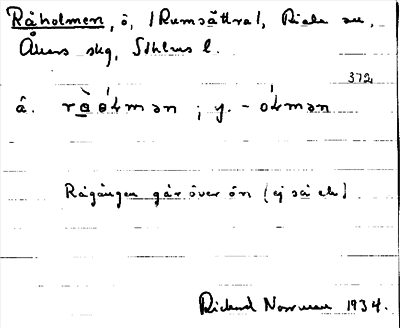 Råholmen, ö, (Rumsättra), Riala sn,
Åkers skg, Sthlms l.
372
å. ; y. -
Rågången går över ön (ej så ck)
Rickard Norrman 1934.